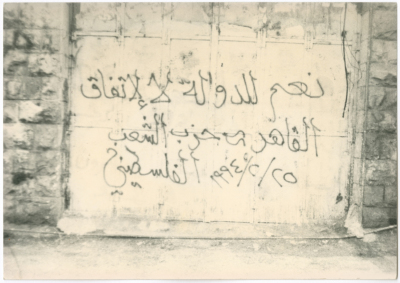 نعم للدولة لا لإتفاق
القاهرة حزب الشعب
الفلسطيني ٢٥/٢/١٩٩٤م